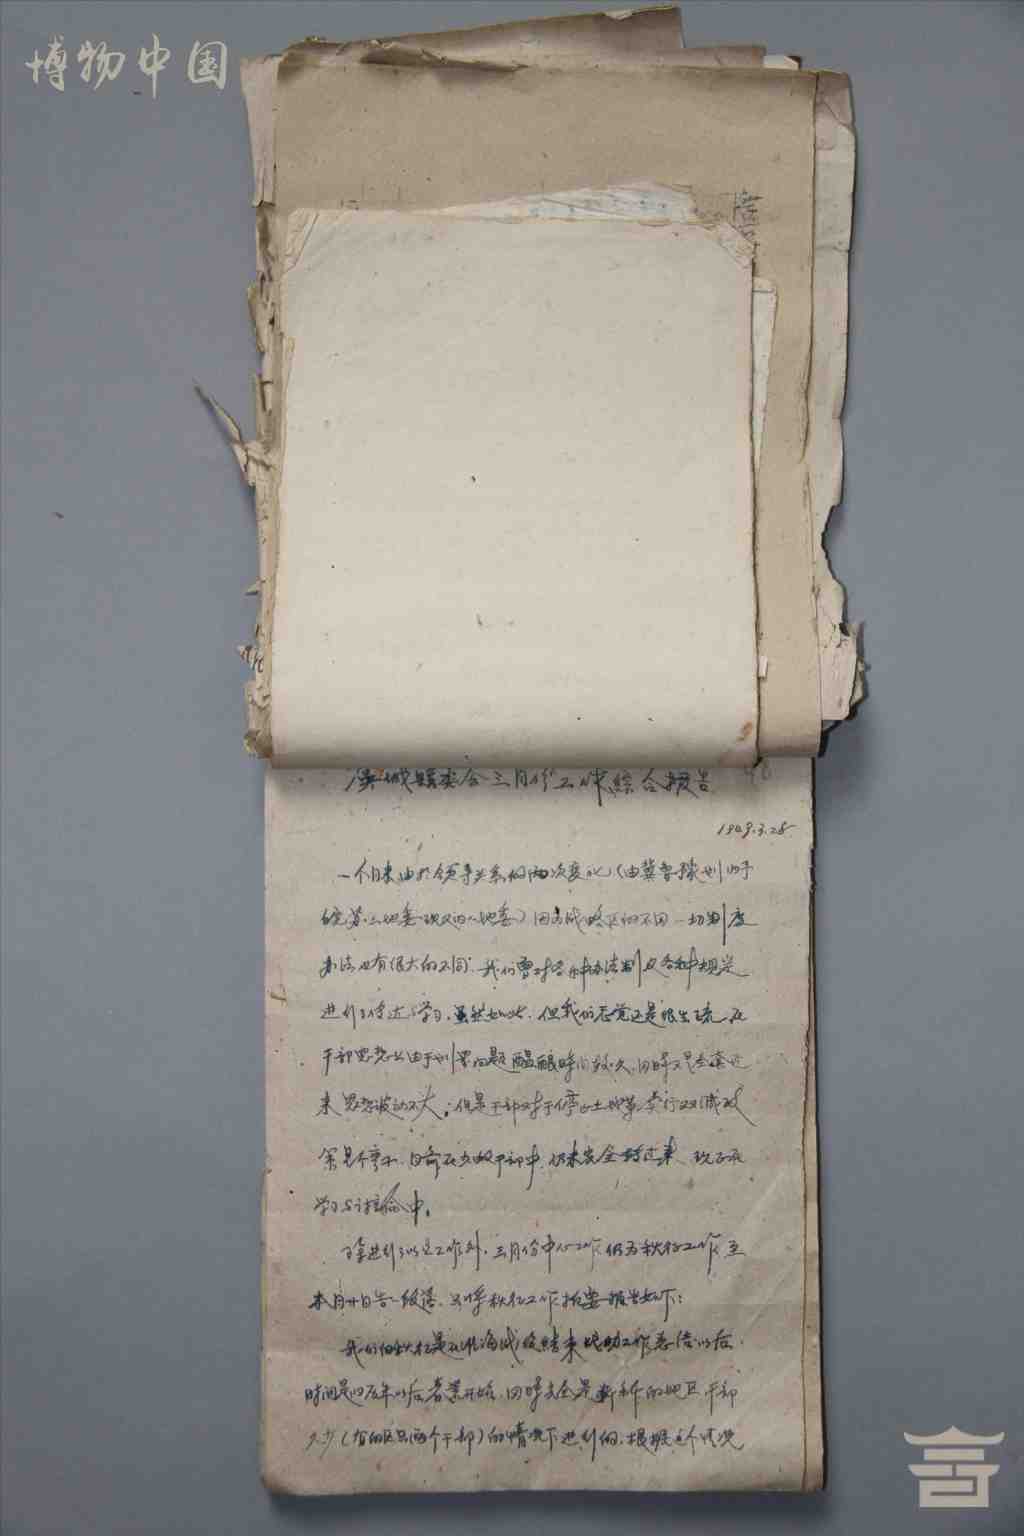 博物中国
城县委会三月份工作综合报告
1949.3.28
一个月来由于领导关系的两次变化(由冀鲁豫划归
地委现又归八地委)因为战略区的不同一切制度
办法也有很大的不同.我们曾对各种办法制度各种规定
进行了传达学习,虽然如此.但我们感觉还是很生疏.在
干部思想上由于划界问题酝酿时间较久,因
来思想波动不大;但是干部对于停止土地革命实行双减政
策 目前在 干部中,仍未完全转过来.现正在
学习与讨论中。
除进行了以上工作外,三月份中心工作仍为秋征工作至
本月廿日告一段落.只将秋征工作扼要报告如下:
我们的秋征是在淮海战役结束战勤工作 以后
时间是旧历年以后 开始.因 是新开的地区,干部
少(有的区只两个干部)的情况下进行的.根据这个情况